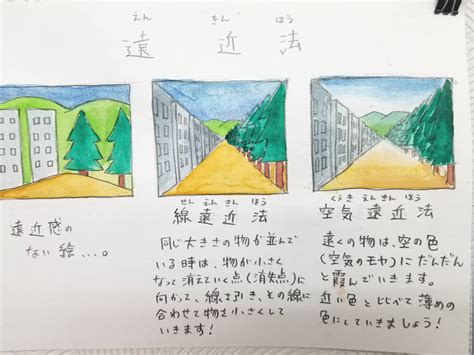 えん きん ほう
遠 近 法
遠近感の
ない絵....。
せん えん きん ほう
線遠近法
同じ大きさの物が並んで
いる時は、物が小さく
なって消えていく点(消失点)に
向かって、線を引き、その線に
合わせて物を小さくして
いきます!
くうき えん きん ほう
空気遠近法
遠くの物は、空の色
(空気のモヤ)にだんだん
と霞んでいきます。
近い色と比べて薄めの
色にしていきましょう!